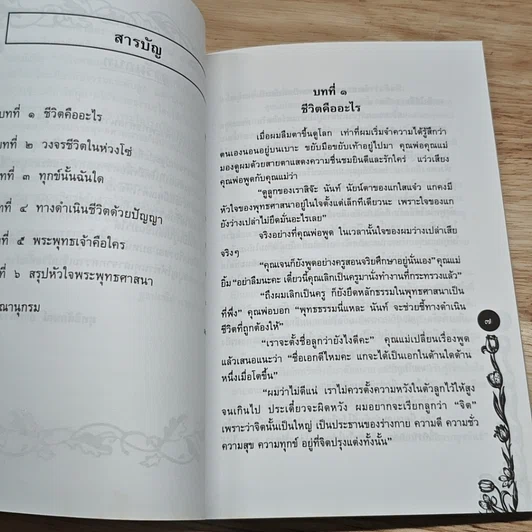 สารบัญ
บทที่ ๑ ชีวิตคืออะไร
บทที่ ๒ วงจรชีวิตในห่วงโซ่
บทที่ ๓ ทุกข์นั้นฉันใด
ที่ ๔ ทางดำเนินชีวิตด้วยปัญญา
ที่ ๕ พระพุทธเจ้าคือใคร
ที่ ๖ สรุปหัวใจพระพุทธศาสนา
ณานุกรม
บทที่ ๑
ชีวิตคืออะไร
เมื่อผมลืมตาขึ้นดูโลก เท่าที่ผมเริ่มจำความได้รู้สึกว่า
ตนเองนอนอยู่บนเบาะ ขยับมือขยับเท้าอยู่ไปมา คุณพ่อคุณแม่
มองดูผมด้วยสายตาแสดงความชื่นชมยินดีและรักใคร่ แว่วเสียง
คุณพ่อพูดกับคุณแม่ว่า
"ดูลูกของเราสิจ๊ะ นันท์ นัยน์ตาของแกใสแจ๋ว แกคงมี
หัวใจของพุทธศาสนาอยู่ในใจตั้งแต่เล็กทีเดียวนะ เพราะใจของแก
ยังว่างเปล่าไม่ยึดมั่นอะไรเลย"
จริงอย่างที่คุณพ่อพูด ในเวลานั้นใจของผมว่างเปล่าเสีย
จริงๆ
"คุณเจนก็ยังพูดอย่างครูสอนจริยศึกษาอยู่นั่นเอง" คุณแม่
ยิ้ม "อย่าลืมนะคะ เดี๋ยวนี้คุณเลิกเป็นครูมานั่งทำงานที่กระทรวงแล้ว"
"ถึงผมเลิกเป็นครู ก็ยังยึดหลักธรรมในพุทธศาสนาเป็น
ที่พึ่ง" คุณพ่อบอก "พุทธธรรมนี่แหละ นันท์ จะช่วยชี้ทางดำเนิน
ชีวิตที่ถูกต้องให้"
"เราจะตั้งชื่อลูกว่ายังไงดีคะ" คุณแม่เปลี่ยนเรื่องพูด
แล้วเสนอแนะว่า "ชื่อเอกดีไหมคะ แกจะได้เป็นเอกในด้านใดด้าน
หนึ่งเมื่อโตขึ้น"
"ผมว่าไม่ดีแน่ เราไม่ควรตั้งความหวังในตัวลูกไว้ให้สูง
จนเกินไป ประเดี๋ยวจะผิดหวัง ผมอยากจะเรียกลูกว่า "จิต"
เพราะว่าจิตนั้นเป็นใหญ่ เป็นประธานของร่างกาย ความดี ความชั่ว
ความสุข ความทุกข์ อยู่ที่จิตปรุงแต่งทั้งนั้น"
๗